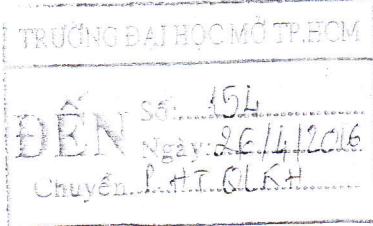 TRƯỜNG ĐẠI HỌC MỞ TP.HCM
ĐẾN
Số:.....154.....
Ngày:.26/4/2016
Chuyển..P.HT.QLKH.....